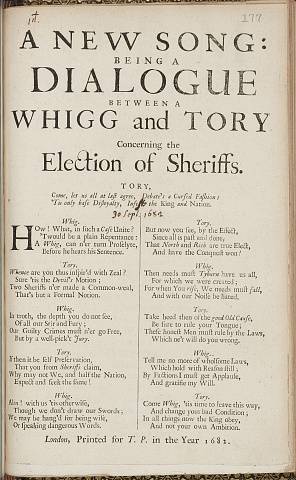 1d.
177
A NEW SONG:
BEING A
DIALOGUE
BETWEEN A
WHIGG and TORY
Concerning the
Election of Sheriffs.
TORY,
Come, let us all at last agree, Debate's a Cursed Fashion:
'Tis only base Disloyalty, the King and Nation.
30 Sept. 1682
Whig.
HOw! What, in such a Case Unite?
'Twould be a plain Repentance:
A Whig, can n'er turn Proselyte,
Before he hears his Sentence.
Tory.
Whence are you thus inspir'd with Zeal?
Sure 'tis the Devil's Motion;
Two Sheriffs n'er made a Common-weal,
That's but a Formal Notion.
Whig.
In troth, the depth you do not see,
Of all our Stir and Fury;
Our Guilty Crimes must n'er go Free,
But by a well-pick't Jury.
Tory.
If then it be self Preservation,
That you from Sheriffs claim,
Why may not We, and half the Nation,
Expect and seek the same?
Whig.
Alas! with us 'tis otherwise,
Though we don't draw our Swords;
We may be hang'd for being wise,
Or speaking dangerous Words.
Tory.
But now you see, by the Effect,
Since all is past and done,
That North and Rich are true Elect,
And have the Conquest won!
Whig.
Then needs must Tyburn have us all,
For which we were created;
For when You rise, We needs must fall,
And with our Noise be hated.
Tory.
Take heed then of the good Old Cause,
Be sure to rule your Tongue;
These honest Men must rule by the Laws,
Which ne'r will do you wrong.
Whig.
Tell me no more of wholsome Laws,
Which hold with Reason still;
By Faction I must get Applause,
And gratifie my Will.
Tory.
Come Whig, 'tis time to leave this way,
And change your bad Condition;
In all things now the King obey,
And not your own Ambition.
London, Printed for T. P. in the Year 1682.